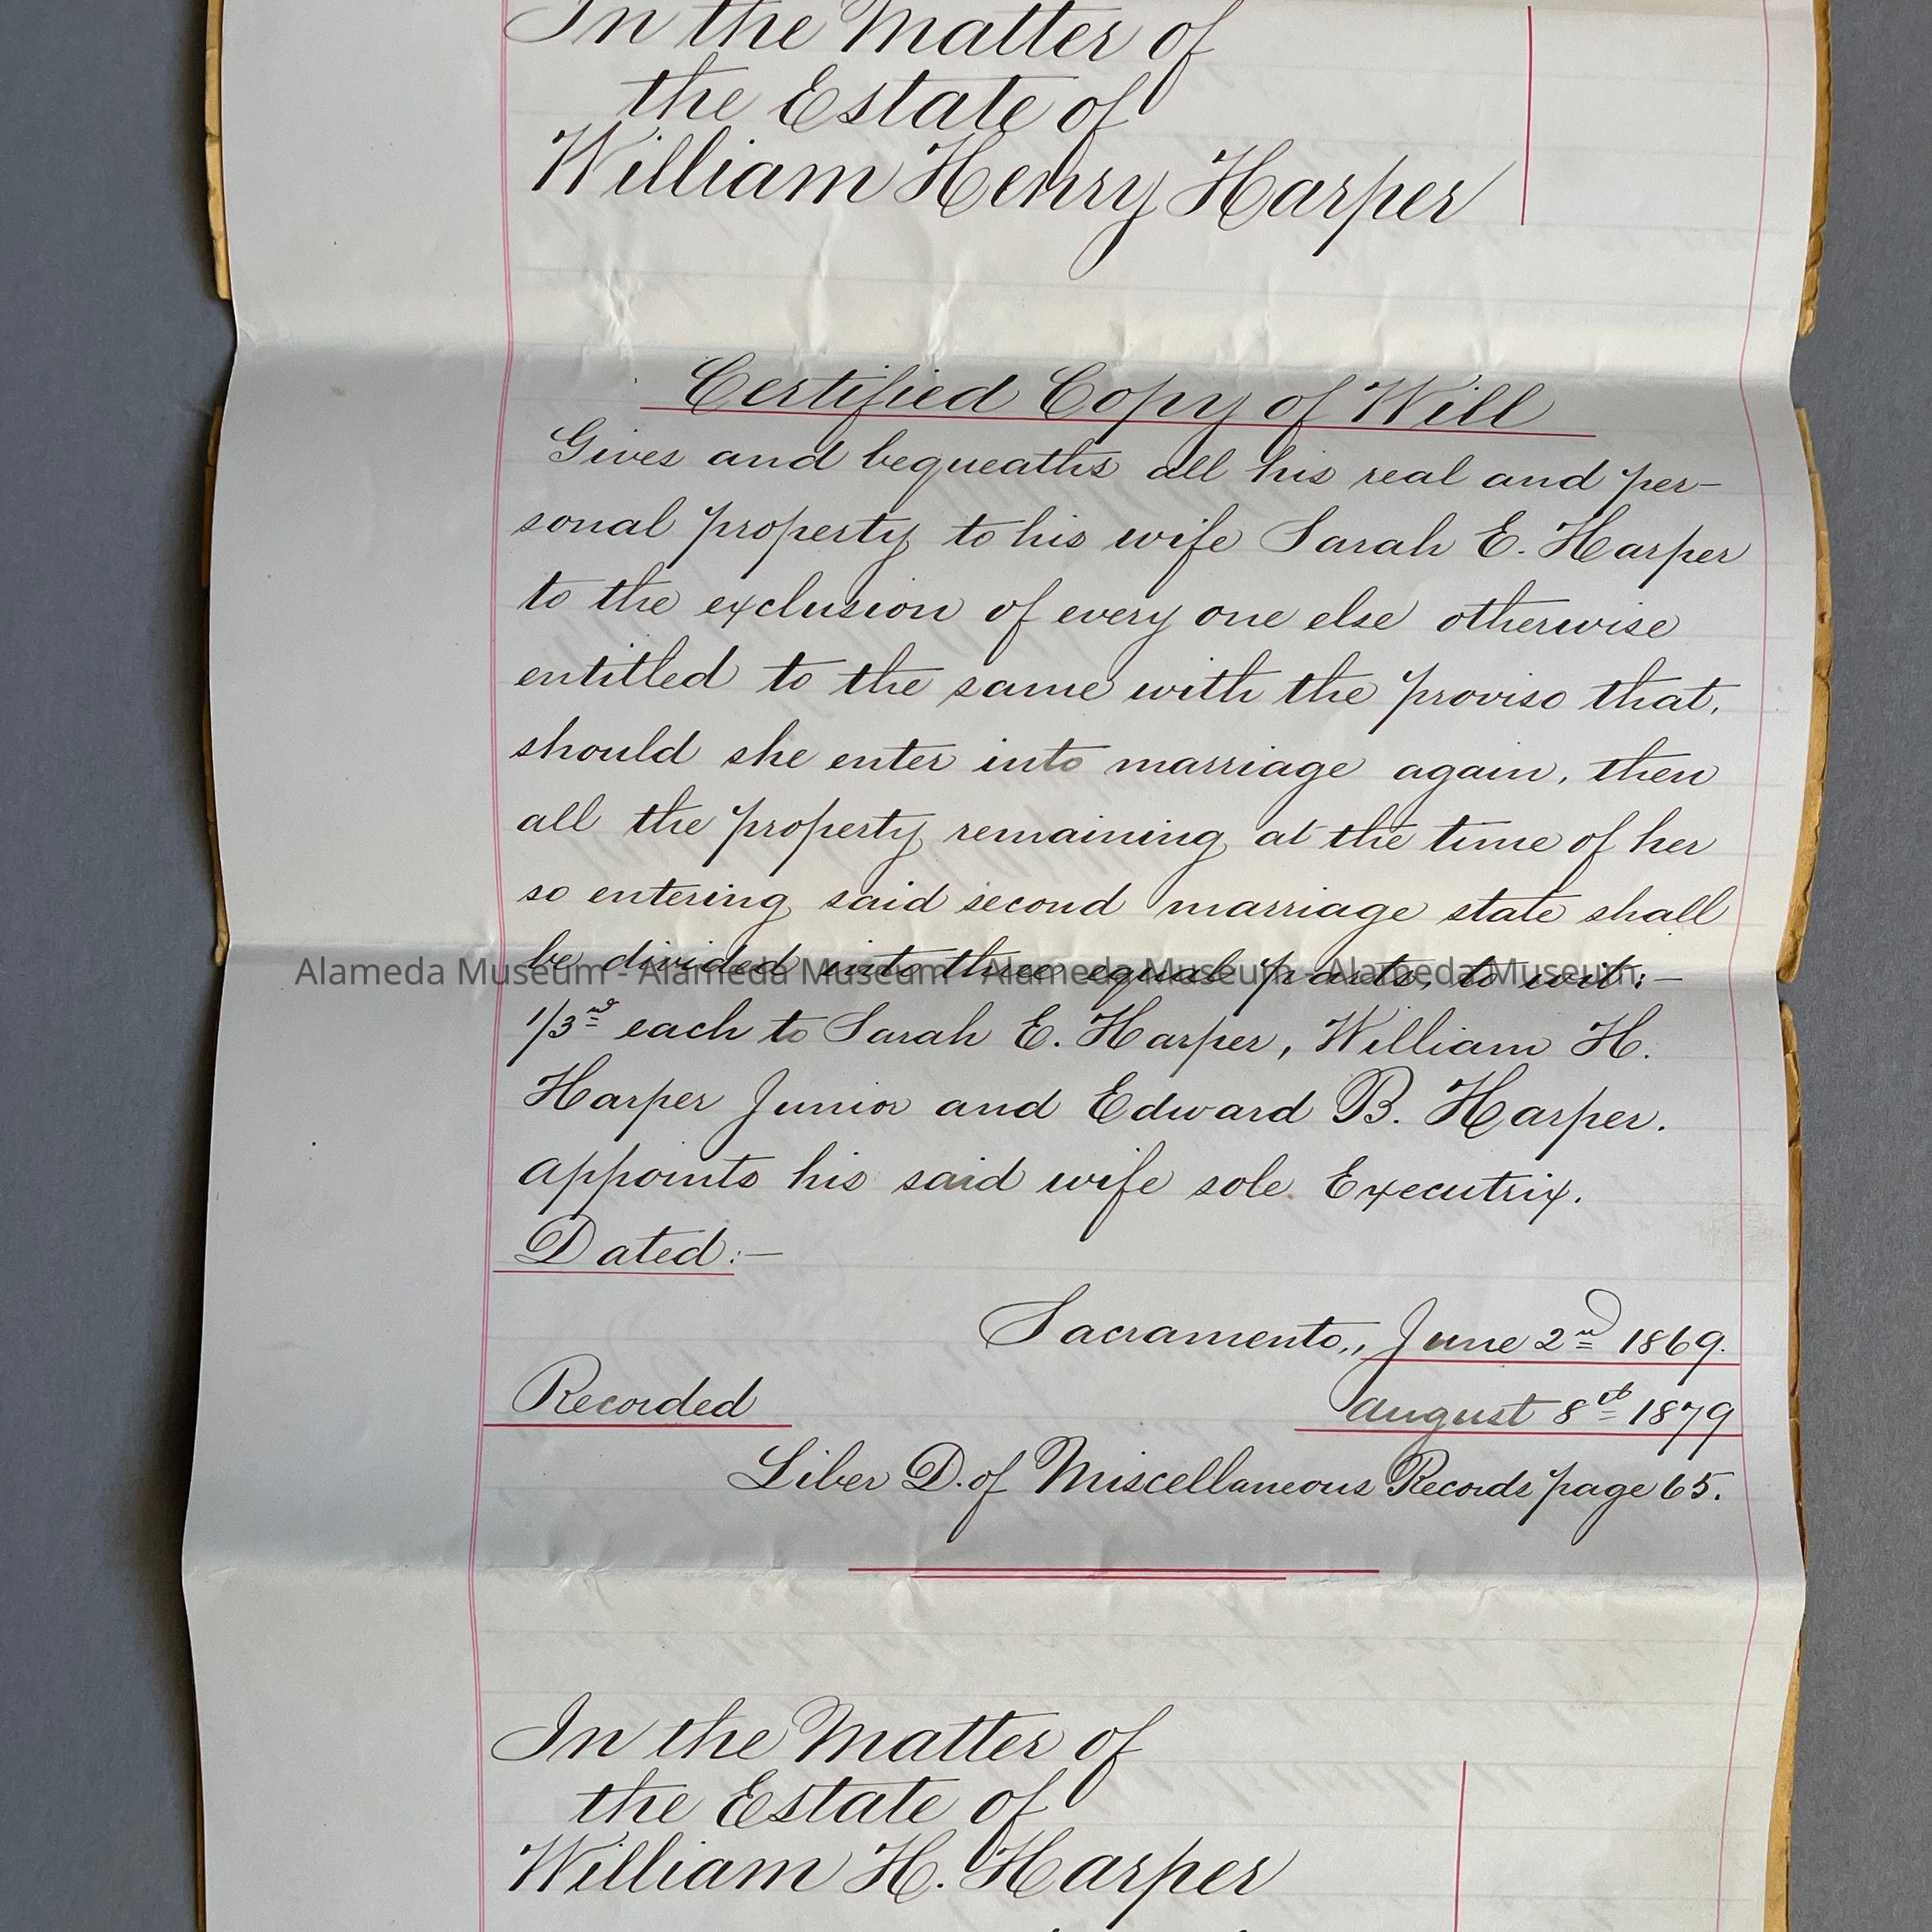 In the Matter of
the Estate of
William Henry Harper
Certified Copy of Will
Gives and bequeaths all his real and per-
sonal property to his wife Sarah E. Harper
to the exclusion of every one else otherwise
entitled to the same with the proviso that,
should she enter into marriage again, then
all the property remaining at the time of her
so entering said second marriage state shall
be divided into three equal parts, to wit:-
Alameda Museum - Alameda Museum - Alameda Museum - Alameda Museum
1/3rd each to Sarah E. Harper, William H.
Harper Junior and Edward B. Harper.
appoints his said wife sole Executrix.
Dated:-
Sacramento,, June 2nd 1869.
Recorded August 8th 1879
Liber D. of Miscellaneous Records page 65.
In the Matter of
the Estate of
William H. Harper